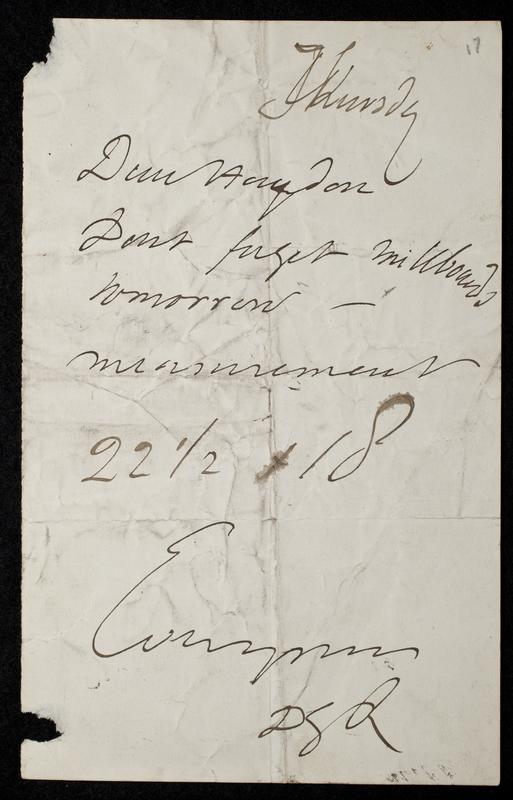 17
Thursdy
Dear Haydon
Dont forget millboards
tomorrow —
measurement
22 1/2 x 18
Ever yours
DGR